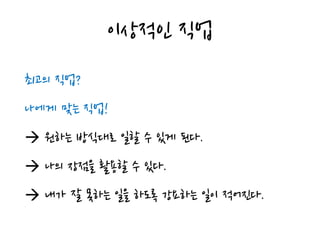 이상적인 직업
최고의 직업?
나에게 맞는 직업!
→ 원하는 방식대로 일할 수 있게 된다.
→ 나의 장점을 활용할 수 있다.
→ 내가 잘 못하는 일을 하도록 강요하는 일이 적어진다.